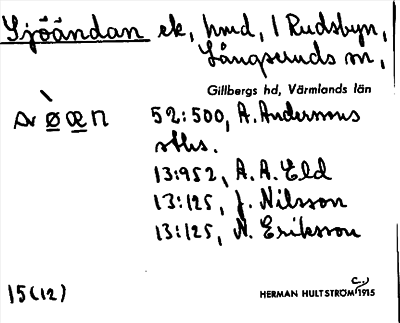 Sjöändan ek, hmd, 1 Rudsbyn,
Långseruds sn,
Gillbergs hd, Värmlands län
52:500, A. Anderssons
stbs.
13:952, A. A. Eld
13:125, J. Nilsson
13:125, N. Eriksson
15(12)
HERMAN HULTSTRÖM 1915